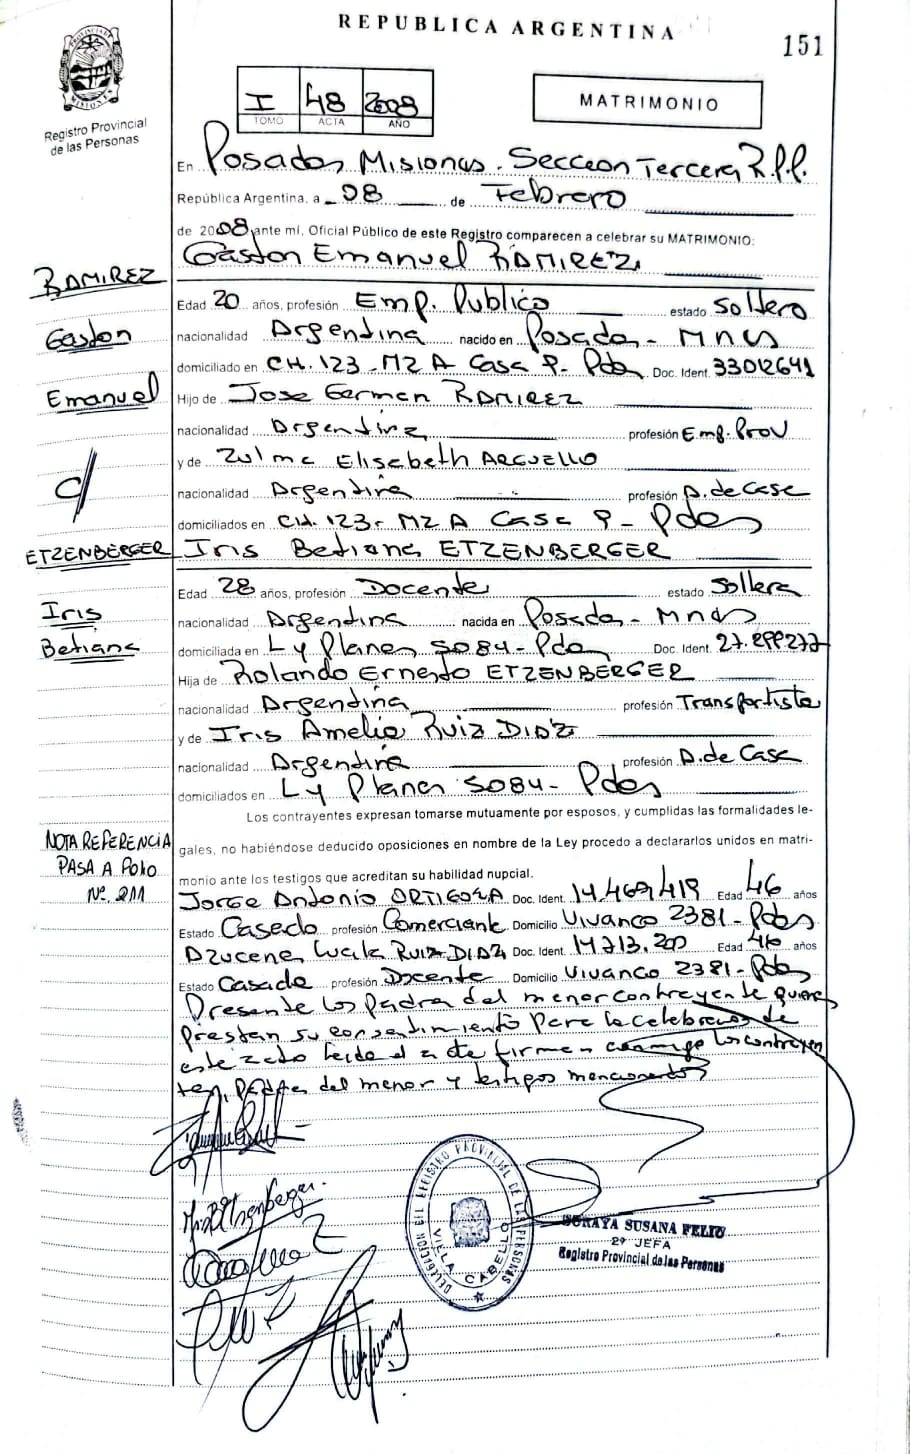 REPUBLICA ARGENTINA
151
PROVINCIA DE MISIONES
Registro Provincial
de las Personas
I 48 2008
TOMO ACTA AÑO
MATRIMONIO
En Posadas, Misiones. Seccion Tercera R.P.P.
República Argentina, a 08 de Febrero
de 2008 ante mí, Oficial Público de este Registro comparecen a celebrar su MATRIMONIO:
Gaston Emanuel RAMIREZ
RAMIREZ
Gaston
Emanuel
c/
ETZENBERGER
Iris
Betiana
Edad 20 años, profesión Emp. Publico estado Soltero
nacionalidad Argentina nacido en Posadas - Mnes
domiciliado en CH. 123 - MZ A Casa 9 - Pdas Doc. Ident. 33012641
Hijo de Jose German RAMIREZ
nacionalidad Argentina profesión Emp. Prov
y de Zulma Elisabeth ARGUELLO
nacionalidad Argentina profesión A. de Casa
domiciliados en CH. 123 - MZ A Casa 9 - Pdas
Iris Betiana ETZENBERGER
Edad 28 años, profesión Docente estado Soltera
nacionalidad Argentina nacida en Posadas - Mnes
domiciliada en L y Planes 5084 - Pdas Doc. Ident. 27.899277
Hija de Rolando Ernesto ETZENBERGER
nacionalidad Argentina profesión Transportista
y de Iris Amelia RUIZ DIAZ
nacionalidad Argentina profesión A. de Casa
domiciliados en L y Planes 5084 - Pdas
Los contrayentes expresan tomarse mutuamente por esposos, y cumplidas las formalidades le-
gales, no habiéndose deducido oposiciones en nombre de la Ley procedo a declararlos unidos en matri-
monio ante los testigos que acreditan su habilidad nupcial.
NOTA REFERENCIA
PASA A FOLIO
Nº. 211
Jorge Antonio ORTIGOZA Doc. Ident. 14.469.419 Edad 46 años
Estado Casado profesión Comerciante Domicilio Vivanco 2381 - Pdas
Azucena Lucila RUIZ DIAZ Doc. Ident. 14.713.200 Edad 46 años
Estado Casada profesión Docente Domicilio Vivanco 2381 - Pdas
Presente los padres del menor contrayente quienes
prestan su consentimiento para la celebracion de
este acto leida el acta firman conmigo los contrayen
tes, padres del menor y testigos mencionados
DELEGACION DEL REGISTRO PROVINCIAL DE LAS PERSONAS
VILLA CABELLO
SORAYA SUSANA FELIU
2º JEFA
Registro Provincial de las Personas